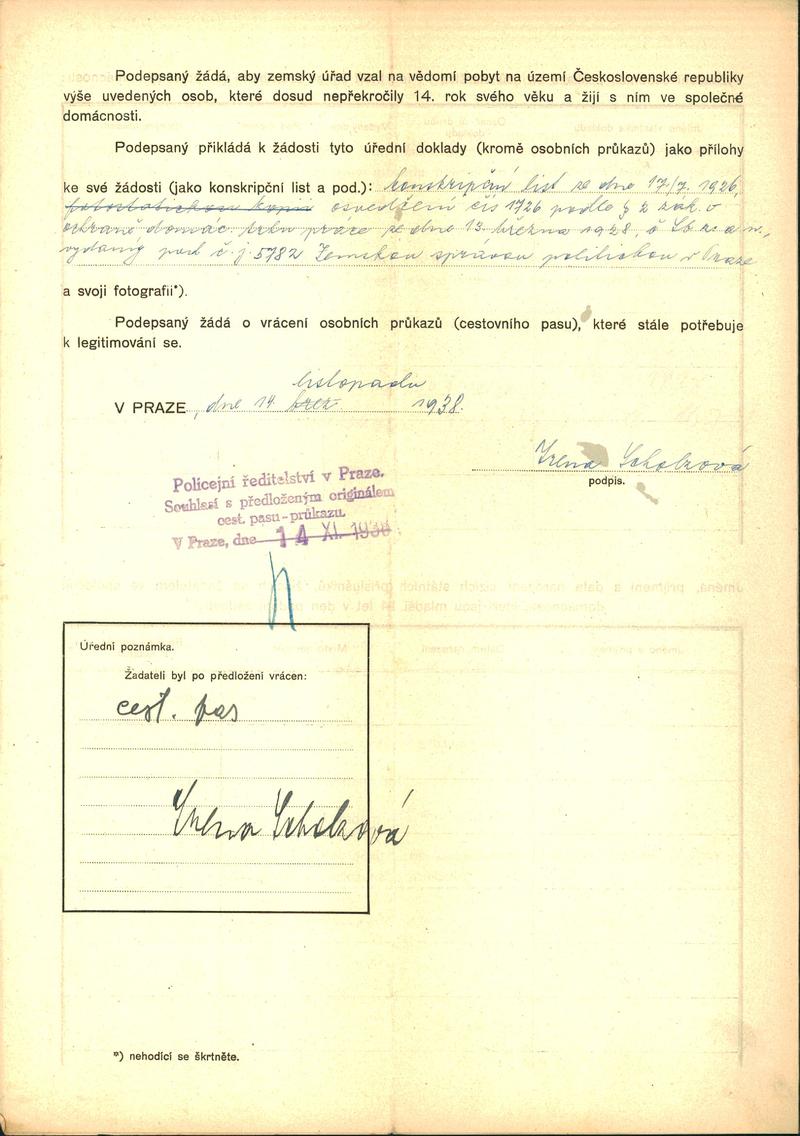 Podepsaný žádá, aby zemský úřad vzal na vědomí pobyt na území Československé republiky
výše uvedených osob, které dosud nepřekročily 14. rok svého věku a žijí s ním ve společné
domácnosti.
Podepsaný přikládá k žádosti tyto úřední doklady (kromě osobních průkazů) jako přílohy
ke své žádosti (jako konskripční list a pod.): konskripční list ze dne 17/7. 1926,
fotostatickou kopii osvědčení čís 1726 podle § 2 zák. o
ochraně domác. trhu práce ze dne 13. března 1928, č Sb z. a n.,
vydaný pod č. j. 5782 Zemskou správou politickou v Praze
a svoji fotografii*).
Podepsaný žádá o vrácení osobních průkazů (cestovního pasu), které stále potřebuje
k legitimování se.
listopadu
V PRAZE, dne 14. břez. 1938.
Irena Scholzová
podpis.
Policejní ředitelství v Praze.
Souhlasí s předloženým originálem
cest. pasu-průkazu.
V Praze, dne 14 XI. 1938
Úřední poznámka.
Žadateli byl po předložení vrácen:
cest. pas
Irena Scholzová
*) nehodící se škrtněte.